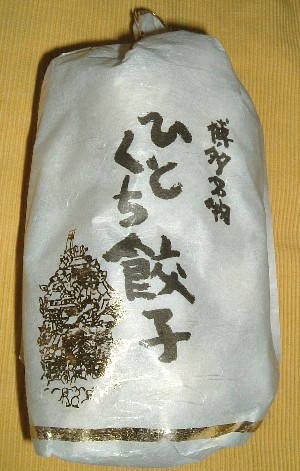 博多名物
ひと
くち
餃子